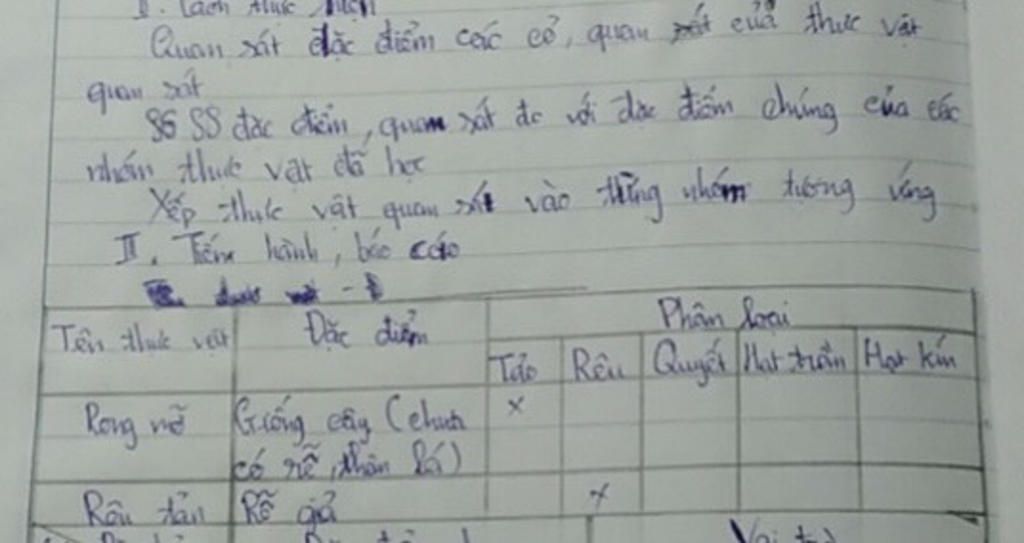 II. Cách thức hiện
Quan sát đặc điểm các cỏ, quan sát của thực vật
quan sát
SS đặc điểm, quan sát đc với đặc điểm chúng của các
nhóm thực vật đã học
Xếp thực vật quan sát vào từng nhóm tương ứng
II. Tiến hành, báo cáo
Tên thực vật Đặc điểm Phân loại
Tảo Rêu Quyết Hạt trần Hạt kín
Rong mỡ Giống cây (chưa x
có rễ, thân lá)
Rêu tản Rễ giả x
Vai trò